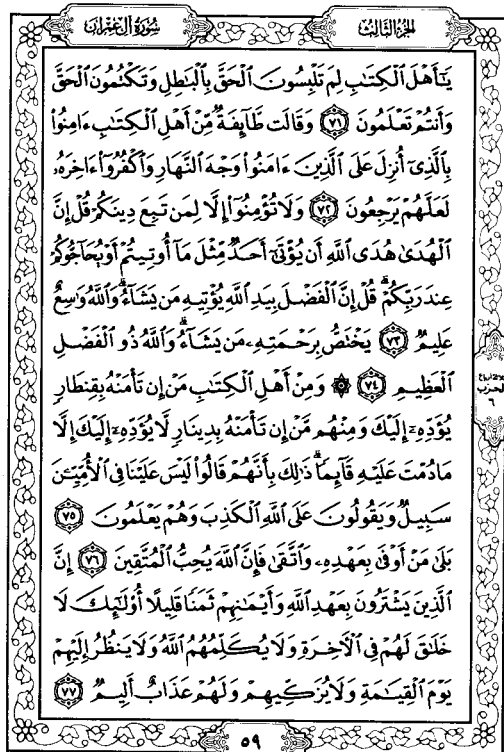 الجزء الثالث
سورة آل عمران
يَٰٓأَهْلَ ٱلْكِتَٰبِ لِمَ تَلْبِسُونَ ٱلْحَقَّ بِٱلْبَٰطِلِ وَتَكْتُمُونَ ٱلْحَقَّ
وَأَنتُمْ تَعْلَمُونَ ٧١ وَقَالَت طَّآئِفَةٌ مِّنْ أَهْلِ ٱلْكِتَٰبِ ءَامِنُوا۟
بِٱلَّذِىٓ أُنزِلَ عَلَى ٱلَّذِينَ ءَامَنُوا۟ وَجْهَ ٱلنَّهَارِ وَٱكْفُرُوٓا۟ ءَاخِرَهُۥ
لَعَلَّهُمْ يَرْجِعُونَ ٧٢ وَلَا تُؤْمِنُوٓا۟ إِلَّا لِمَن تَبِعَ دِينَكُمْ قُلْ إِنَّ
ٱلْهُدَىٰ هُدَى ٱللَّهِ أَن يُؤْتَىٰٓ أَحَدٌ مِّثْلَ مَآ أُوتِيتُمْ أَوْ يُحَآجُّوكُمْ
عِندَ رَبِّكُمْ ۗ قُلْ إِنَّ ٱلْفَضْلَ بِيَدِ ٱللَّهِ يُؤْتِيهِ مَن يَشَآءُ ۗ وَٱللَّهُ وَٰسِعٌ
عَلِيمٌ ٧٣ يَخْتَصُّ بِرَحْمَتِهِۦ مَن يَشَآءُ ۗ وَٱللَّهُ ذُو ٱلْفَضْلِ
ٱلْعَظِيمِ ٧٤ ۞ وَمِنْ أَهْلِ ٱلْكِتَٰبِ مَنْ إِن تَأْمَنْهُ بِقِنطَارٍ
يُؤَدِّهِۦٓ إِلَيْكَ وَمِنْهُم مَّنْ إِن تَأْمَنْهُ بِدِينَارٍ لَّا يُؤَدِّهِۦٓ إِلَيْكَ إِلَّا
مَا دُمْتَ عَلَيْهِ قَآئِمًا ۗ ذَٰلِكَ بِأَنَّهُمْ قَالُوا۟ لَيْسَ عَلَيْنَا فِى ٱلْأُمِّيِّـۧنَ
سَبِيلٌ وَيَقُولُونَ عَلَى ٱللَّهِ ٱلْكَذِبَ وَهُمْ يَعْلَمُونَ ٧٥
بَلَىٰ مَنْ أَوْفَىٰ بِعَهْدِهِۦ وَٱتَّقَىٰ فَإِنَّ ٱللَّهَ يُحِبُّ ٱلْمُتَّقِينَ ٧٦ إِنَّ
ٱلَّذِينَ يَشْتَرُونَ بِعَهْدِ ٱللَّهِ وَأَيْمَٰنِهِمْ ثَمَنًا قَلِيلًا أُو۟لَٰٓئِكَ لَا
خَلَٰقَ لَهُمْ فِى ٱلْءَاخِرَةِ وَلَا يُكَلِّمُهُمُ ٱللَّهُ وَلَا يَنظُرُ إِلَيْهِمْ
يَوْمَ ٱلْقِيَٰمَةِ وَلَا يُزَكِّيهِمْ وَلَهُمْ عَذَابٌ أَلِيمٌ ٧٧
الحزب
٦
٥٩